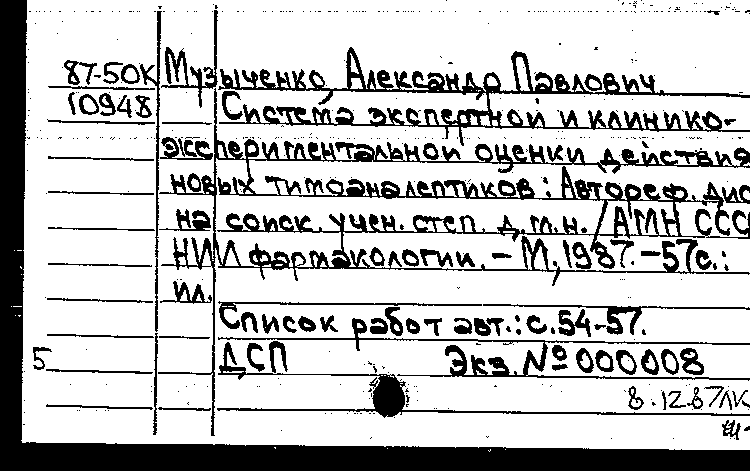 87-50К Музыченко, Александр Павлович.
10948 Система экспертной и клинико-
экспериментальной оценки действия
новых тимоаналептиков: Автореф. дис
на соиск. учен. степ. д.м.н. / АМН СССР
НИИ фармакологии. - М., 1987. - 57с.:
ил.
Список работ авт.: с. 54-57.
5 ДСП Экз. № 000008
8.12.87 ЛК